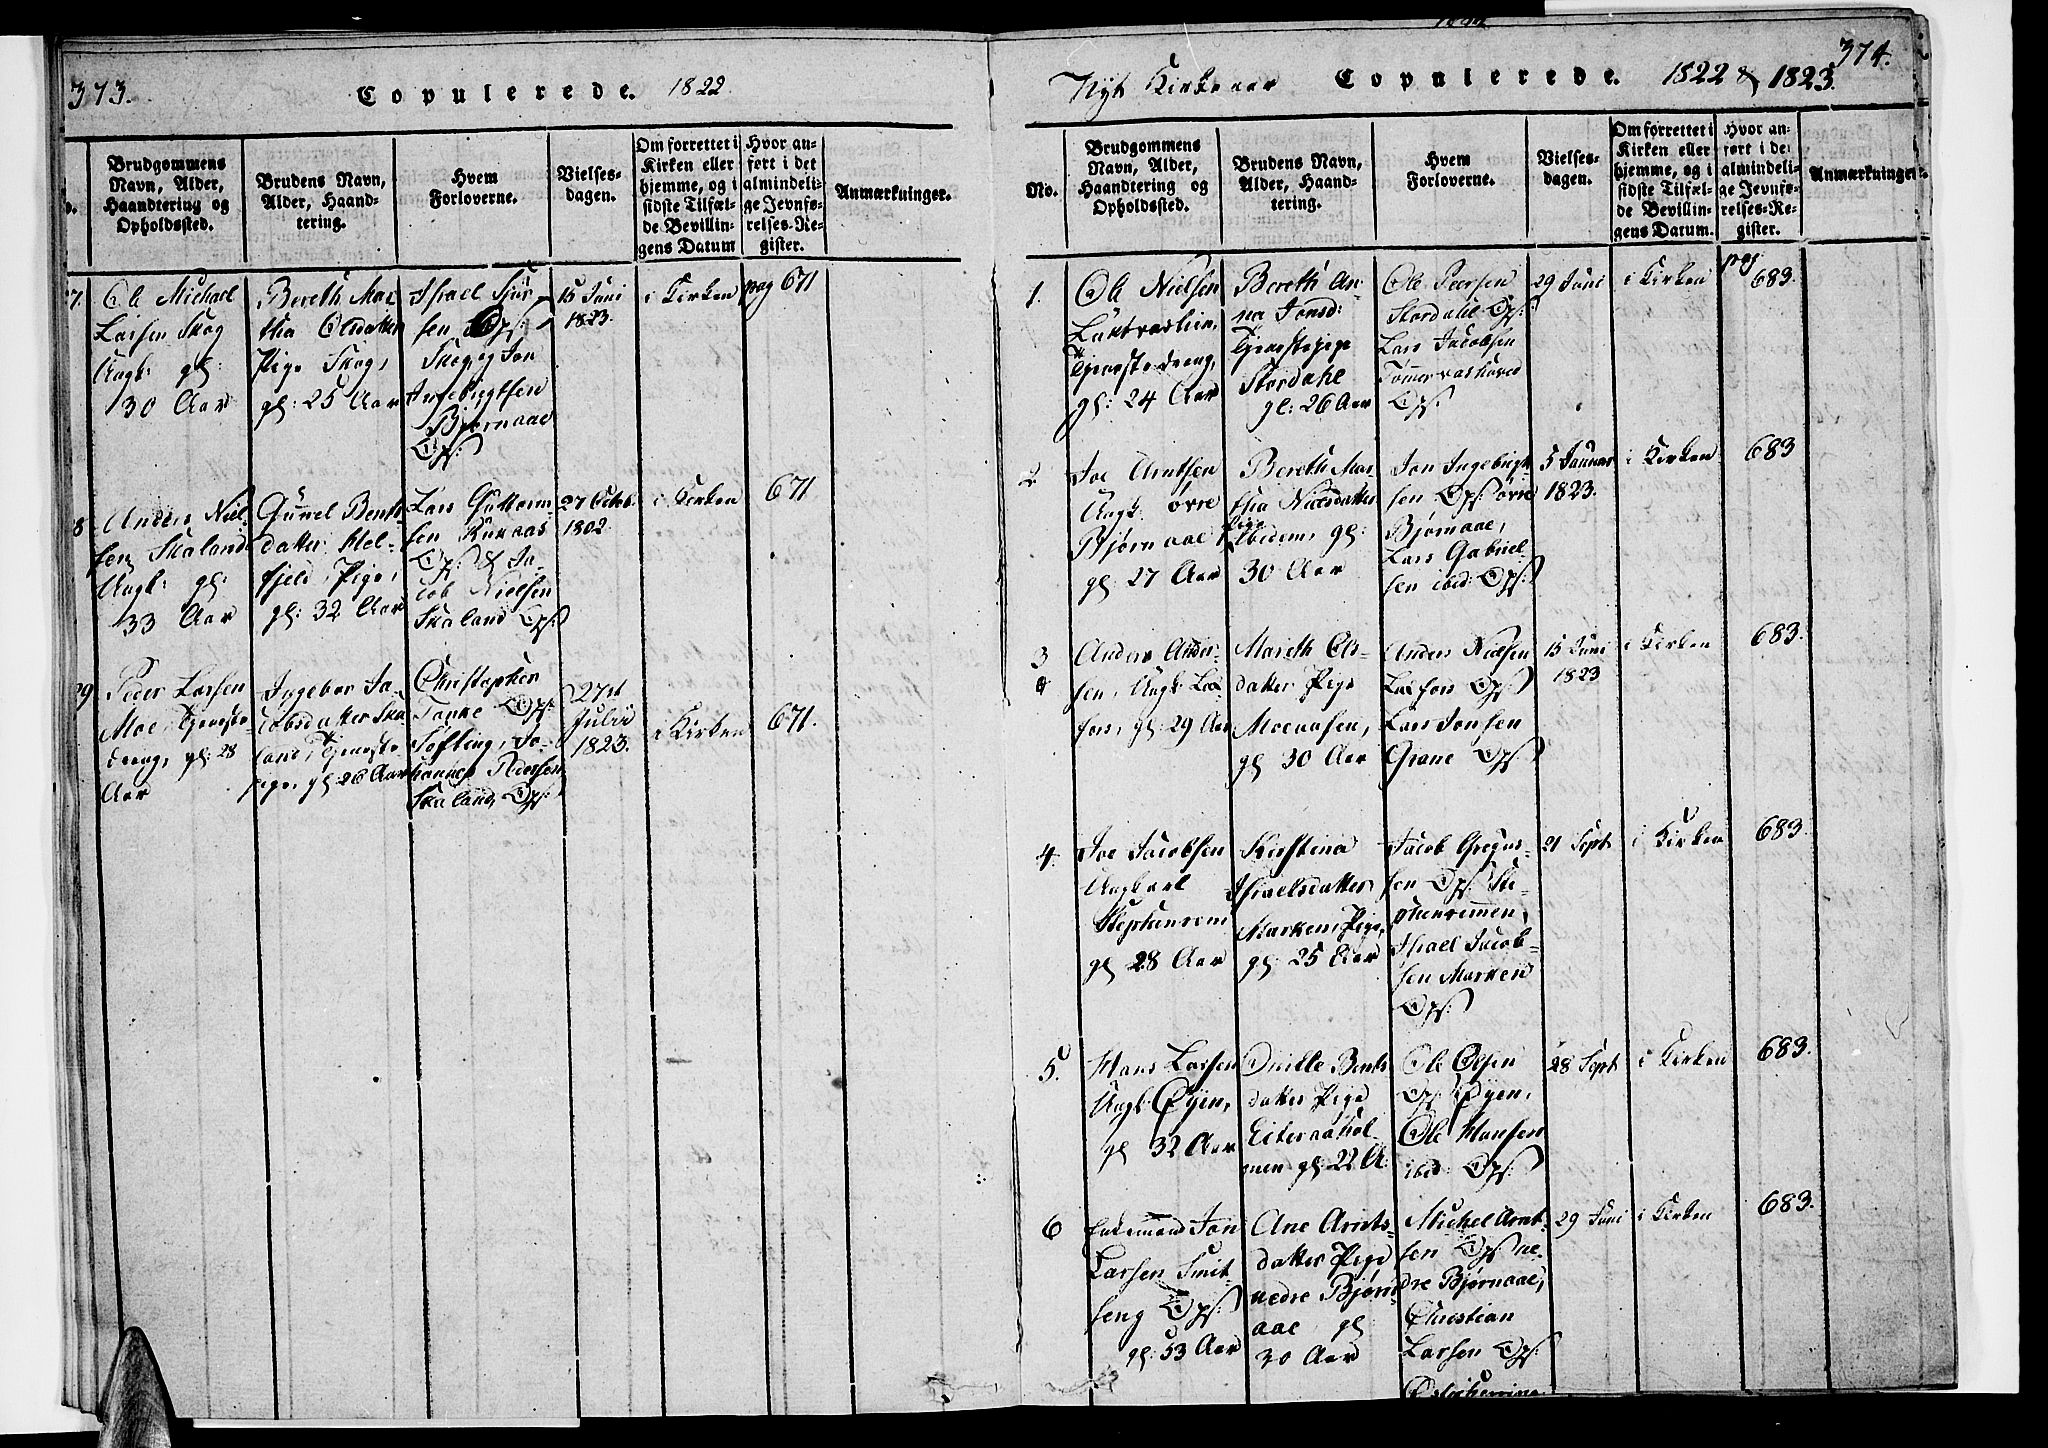 373.
Copulerede. 1822
Brudgommens Navn, Alder, Haandtering og Opholdssted.
Brudens Navn, Alder, Haandtering.
Hvem Forloverne.
Vielsesdagen.
Om forrettet i Kirken eller hjemme, og i sidste Tilfælde Bevillingens Datum
Hvor anført i det almindelige Jevnførelses-Register.
Anmærkninger.
7.
Ole Michael
Larsen Skog
Ungk: gl:
30 Aar
Bereth Mar
tha Olsdatter
Pige Skog,
gl: 25 Aar
Israel Siur
sen Ops:
Skog, Jon
Ingebrigtsen
Bjørnaae
Ops:
15 Juni
1823.
i Kirken
pag 671
8
Anders Niel
sen Skaland
Ungk: gl:
33 Aar
Gunel Bents
datter Mel
fjeld, Pige,
gl: 32 Aar
Lars Guttorm
sen
Ops: & Ja-
cob Nielsen
Skaland Ops:
27 Octob.
1802.
i Kirken
671
29
Peder Larsen
Moe, Tjeneste
dreng, gl: 28
Aar
Ingebor Ja-
cobsdatter Ska
land, Tjeneste
pige, gl 26 Aar
Christopher
Tanke Ops:
Søfting, Jo-
hannes Pedersen
Skaland, Ops:
27st
Julii
1823.
i Kirken
671.
374.
Nyt Kirkeaar Copulerede. 1822 & 1823.
No.
Brudgommens Navn, Alder, Haandtering og Opholdssted.
Brudens Navn, Alder, Haandtering.
Hvem Forloverne.
Vielsesdagen.
Om forrettet i Kirken eller hjemme, og i sidste Tilfælde Bevillingens Datum.
Hvor anført i det almindelige Jevnførelses-Register.
Anmærkninger.
1.
Ole Nielsen
Tjenestedreng,
gl: 24 Aar
Bereth An-
na Jonsd:
Tjenestepige
Stordahl
gl: 26 Aar
Ole Peersen
Stordahl Ops:
Lars Jacobsen
Tømmervashoved
Ops:
29 Juni
i Kirken
pag
683.
2
Joe Arntsen
Ungk. øvre
Bjørnaae
gl: 27 Aar
Bereth Mar
tha Nielsdatter
Pige
ibidem, gl:
30 Aar
Jon Ingebrigt
sen Ops: øvre
Bjørnaae,
Lars Gabriel-
sen ibid: Ops:
5 Januar
1823.
i Kirken
683
3
Anders Ander-
sen, Ungk. Lax
fors, gl: 29 Aar
Mareth Ols-
datter Pige
Moeaasen,
gl 30 Aar
Anders Nielsen
Laxfors Ops:
Lars Jonsen
Grane Ops:
15 Juni
1823
i Kirken
683.
4.
Joe Jacobsen
Ungkarl
gl 28 Aar
Kirstina
Israelsdatter
Marken, Pige,
gl: 25 Aar
Jacob Gregus-
sen Ops: Ste-
phenremmen,
Israel Jacob-
sen Marken
Ops:
21 Sept
i Kirken
683.
5.
Hans Larsen
Ungk. Øyen,
gl 32 Aar
Bents
datter Pige
Eiteraahol-
men gl: 22 A:
Ole Olsen
Ops: Øyen,
Ole Hansen
ibid: Ops:
28 Sept
i Kirken
683.
6
Enkemand Jon
Larsen Smit-
seng Ops:
gl: 53 Aar
Ane Arnts-
datter Pige
nedre Bjørn
aae, gl
30 Aar
Michel Arnt-
sen Ops: ne-
dre Bjørnaae,
Christian
Larsen Ops:
29 Juni
i Kirken
683.